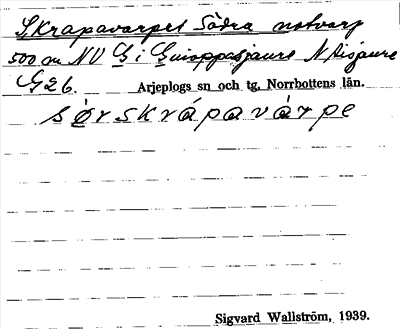 Skrapavarpet Södra notvarp
500 m NV G i Guioppasjaure N Aisjaure
G26. Arjeplogs sn och tg, Norrbottens län.
sörskrápavárpe
Sigvard Wallström, 1939.